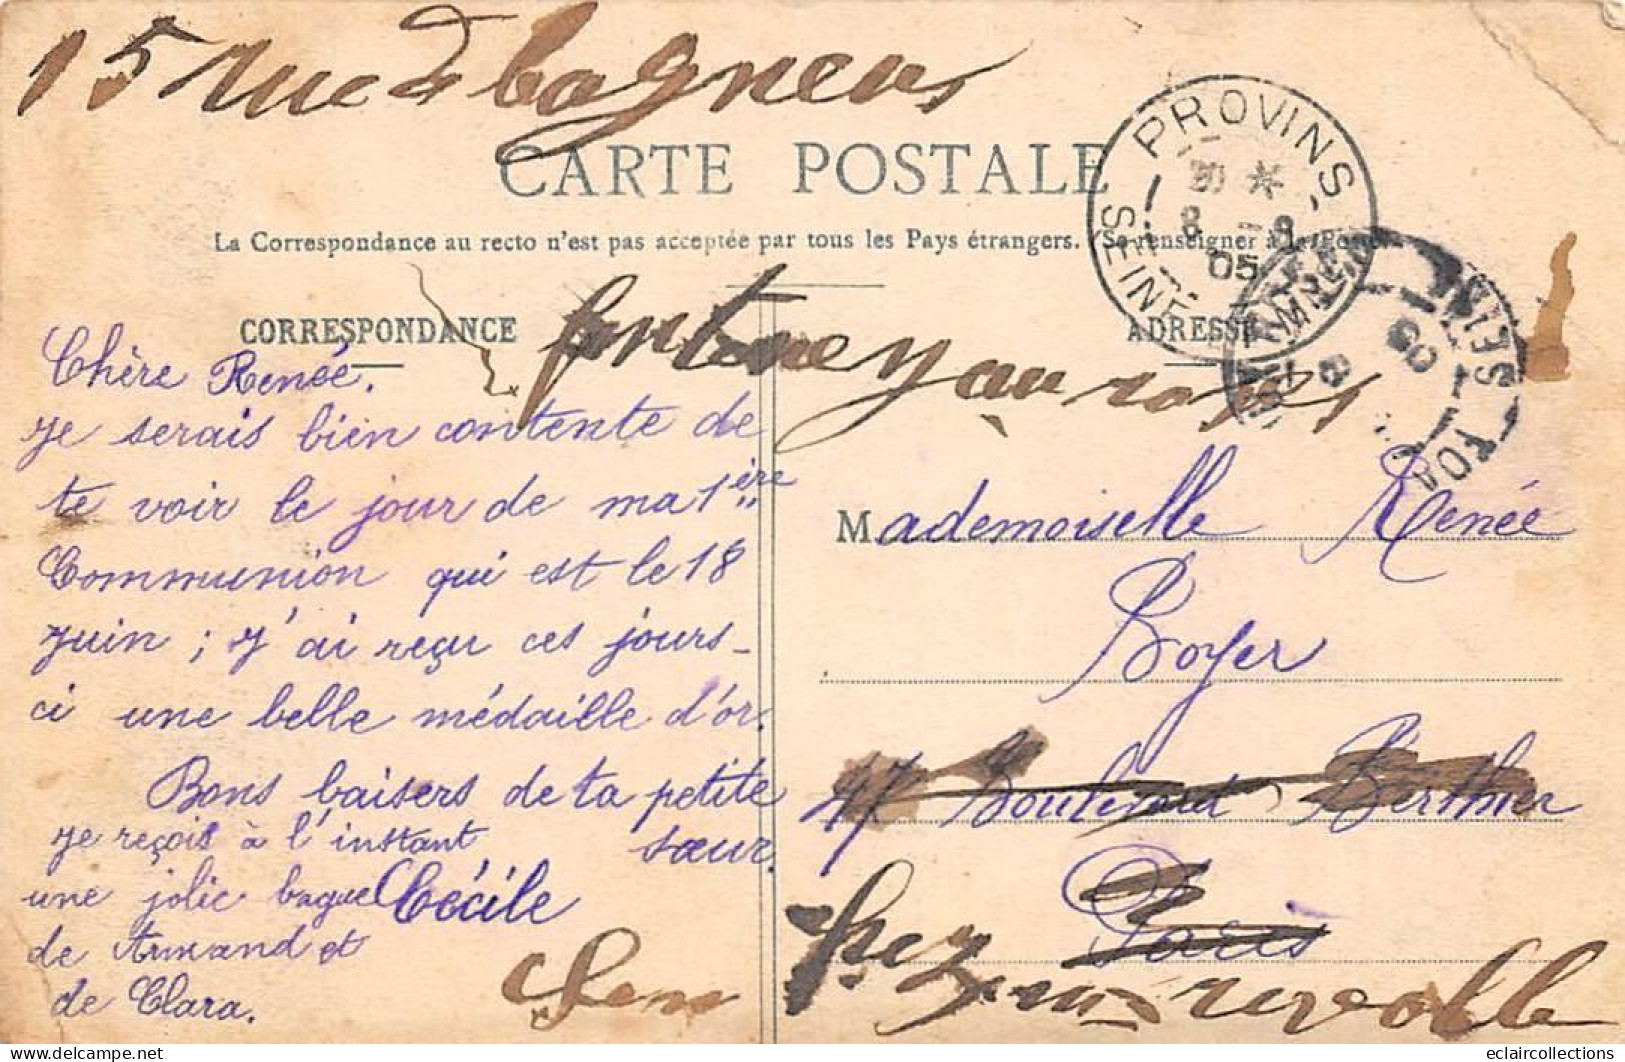 15 rue de bagneux
CARTE POSTALE
La Correspondance au recto n'est pas acceptée par tous les Pays étrangers. (Se renseigner à la Poste)
PROVINS
SEINE
8 - 8
05
05
SEINE
fontenay au roses
CORRESPONDANCE
ADRESSE
Chère Renée.
je serais bien contente de
te voir le jour de ma 1ère
Communion qui est le 18
juin ; j'ai reçu ces jours-
ci une belle médaille d'or.
Bons baisers de ta petite
sœur.
Cécile
je reçois à l'instant
une jolie bague
de Armand et
de Clara.
Mademoiselle Renée
Boyer
47 Boulevard Berthier
Paris
chez
revolle
eclaircollections